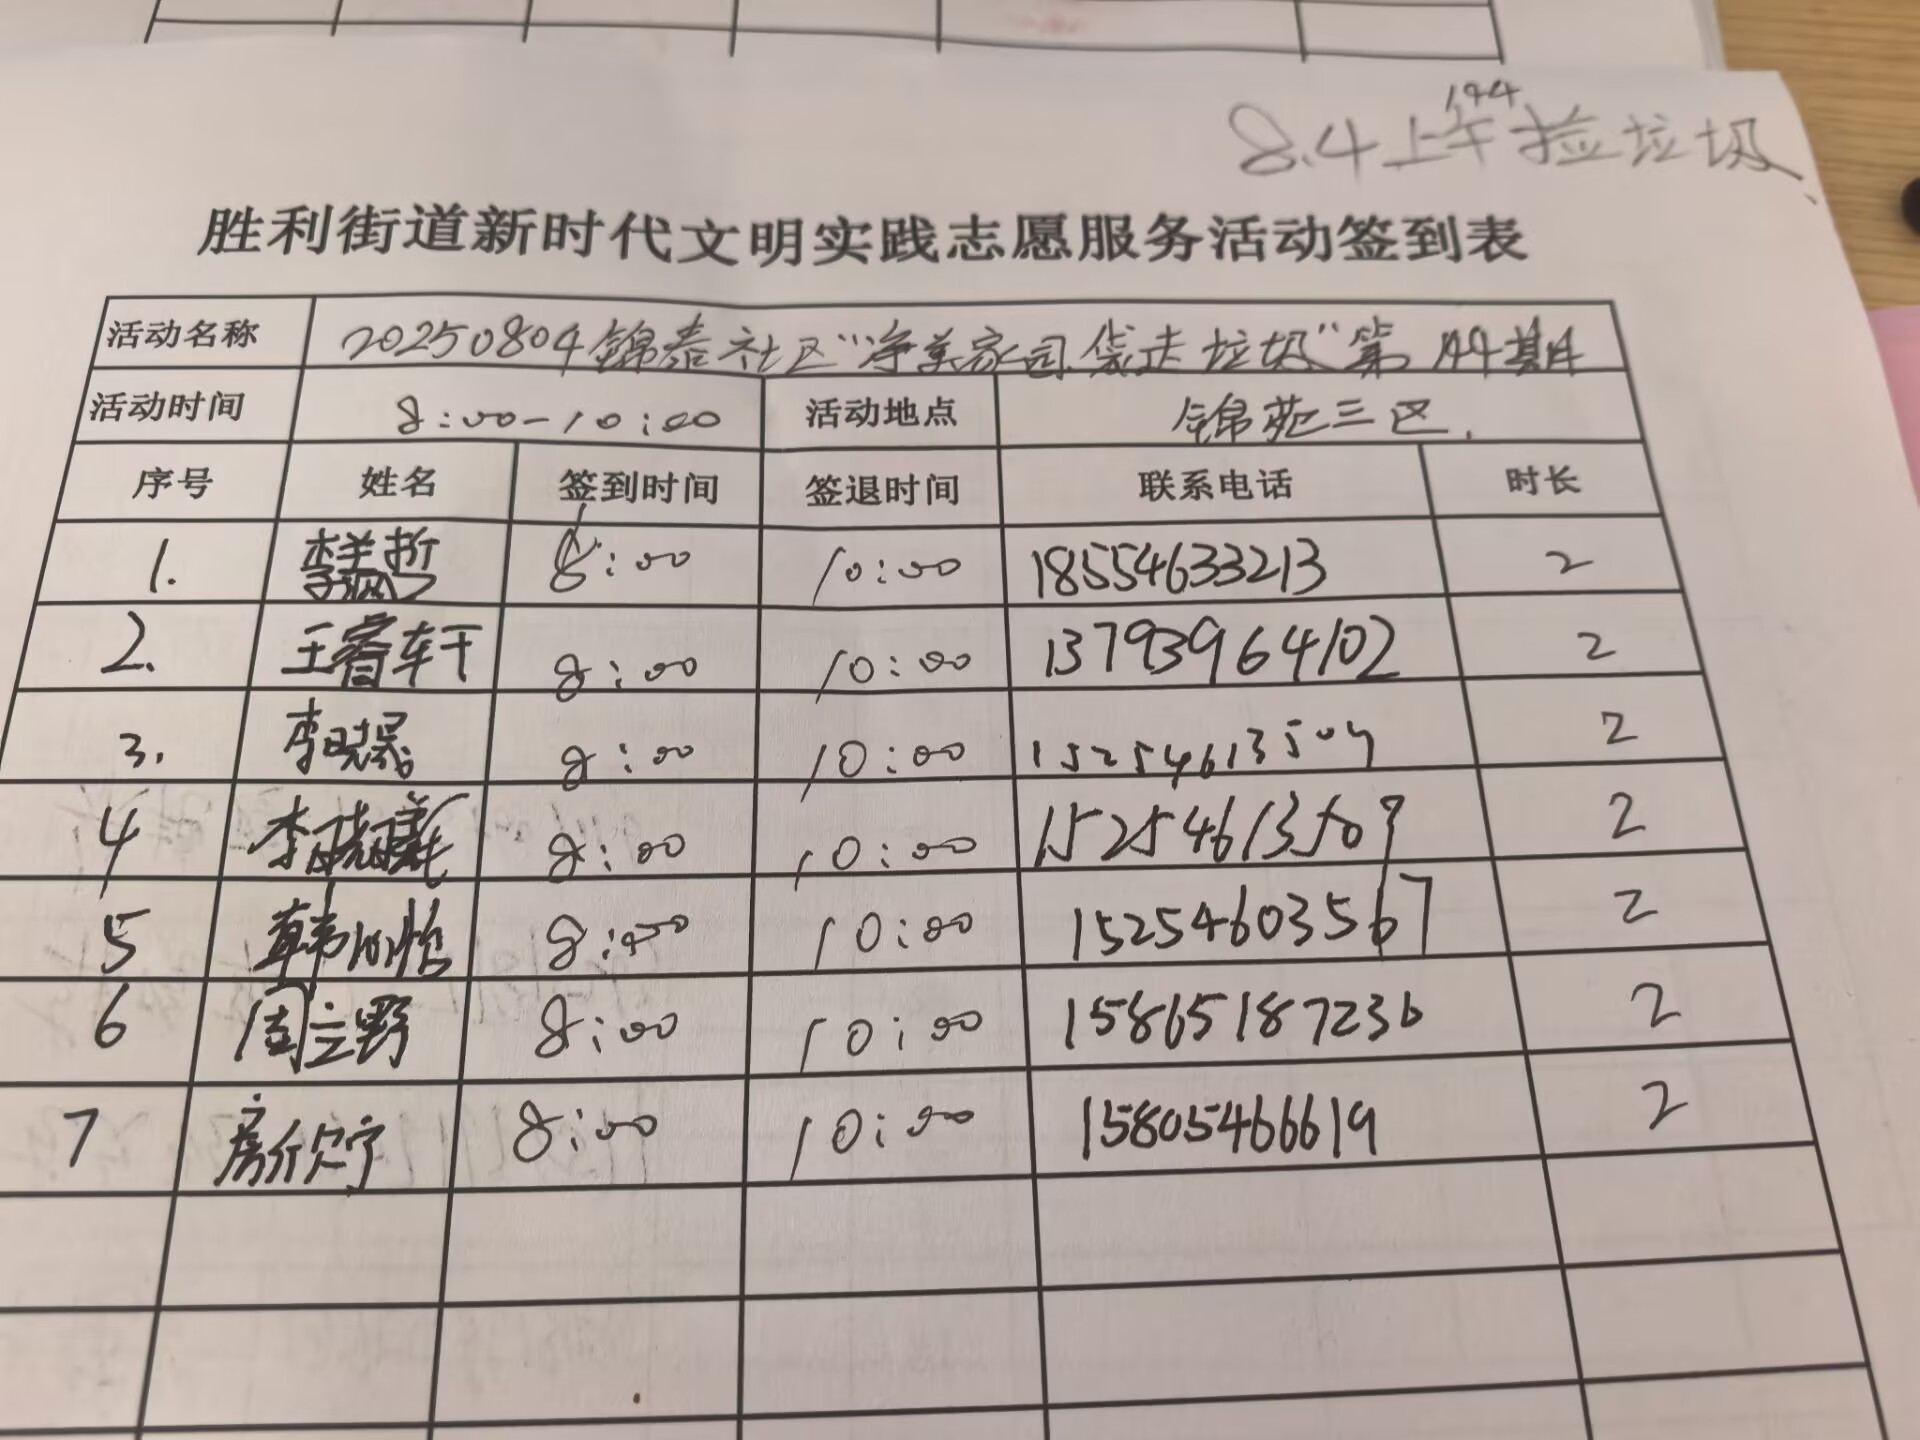 194
8.4上午捡垃圾
胜利街道新时代文明实践志愿服务活动签到表
活动名称 20250804锦泰社区“净美家园 袋走垃圾”第194期
活动时间 8:00-10:00 活动地点 锦苑三区.
序号 姓名 签到时间 签退时间 联系电话 时长
1. 李美哲 8:00 10:00 18554633213 2
2. 王睿轩 8:00 10:00 13793964102 2
3. 李 8:00 10:00 15254613509 2
4 李晓曦 8:00 10:00 15254613509 2
5 韩怡 8:00 10:00 15254603567 2
6 周立野 8:00 10:00 15865187236 2
7 房欣宁 8:00 10:00 15805466619 2